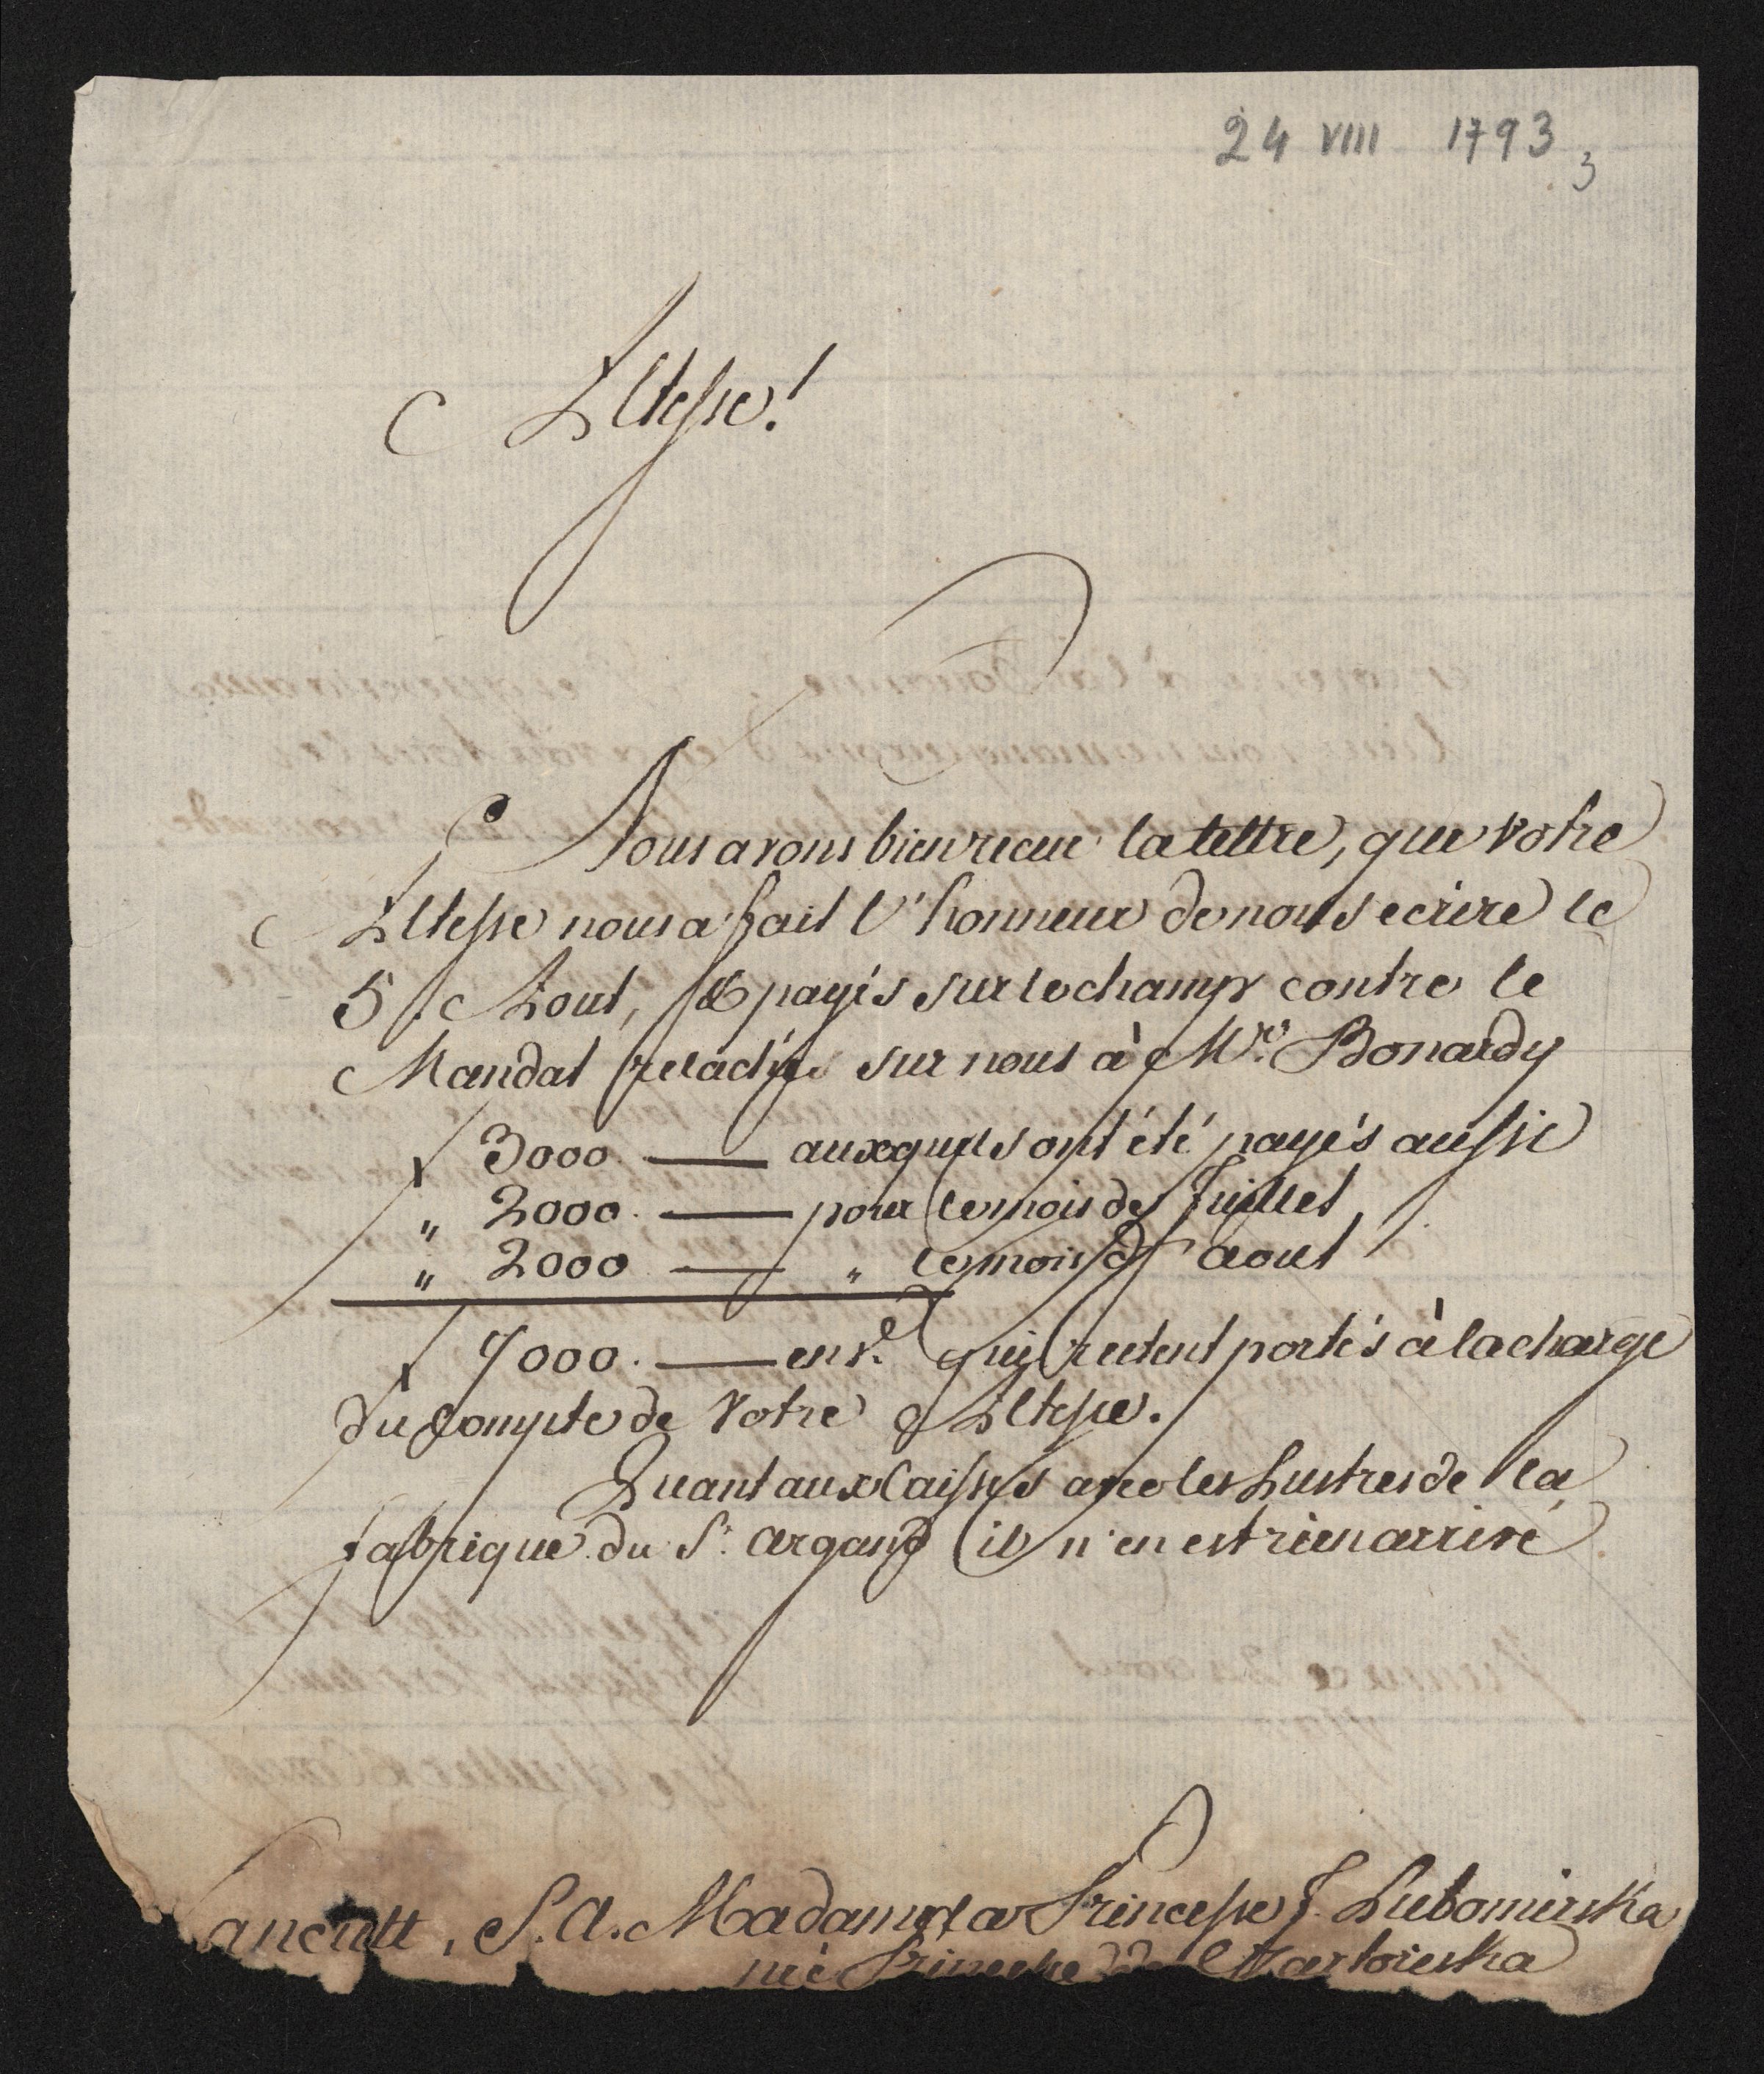 24 VIII 1793
3
Altesse!
Nous avons bien recue la lettre, que Votre
Altesse nous a fait l'honneur de nous ecrire le
5 / Aout, & payés sur le champ contre le
Mandat relachée sur nous à Mr. Bonardy
f 3000. — auxquels ont été payés aussi
" 2000. — pour le mois de Juillet
" 2000 — " le mois d' aout
f 7000. — ens.e qui restent portés à la charge
du Compte de Votre Altesse.
Quant aux Caisses avec les Lustres de la
fabrique du Sr. Argand il n'en est rien arrivé
Lancutt, S. A. Madame la Princesse J. Lubomirska
née Princesse de Czartoriska